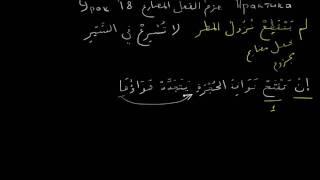 Урок 18 جزم الفعل المضارع Практика
لم يَنْقَطِعْ نُزُولُ المطر لا تُسْرِعْ في السَّيْرِ
فعل مضارع
مجزوم
إنْ تَفْتَحْ نَوَافِذَ الحُجْرَةِ يَتَجَدَّدْ هَوَاؤُهَا